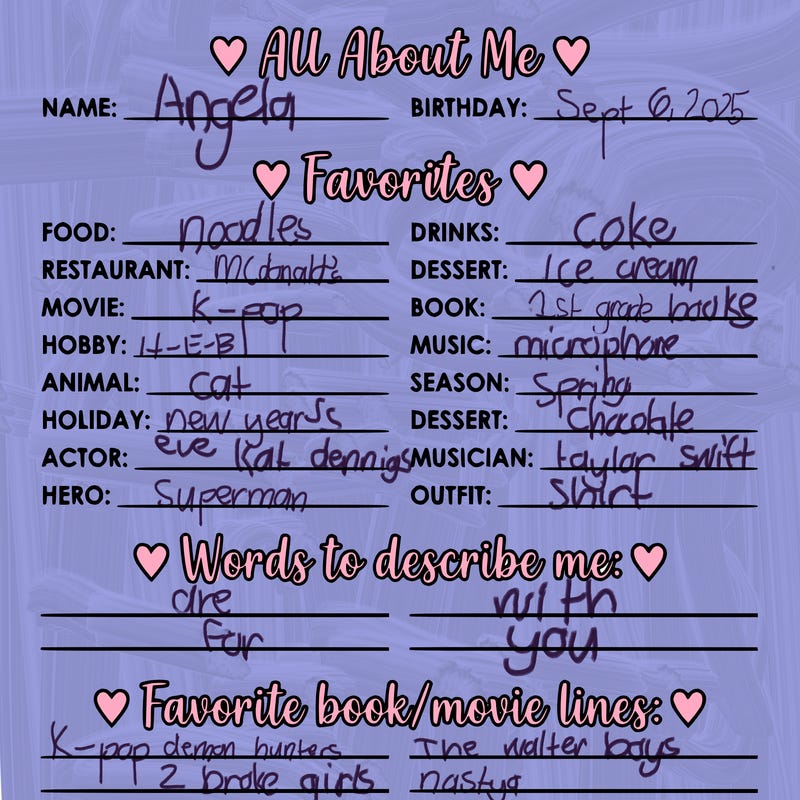 All About Me
NAME: Angela BIRTHDAY: Sept 6, 2025
Favorites
FOOD: noodles DRINKS: coke
RESTAURANT: McDonald's DESSERT: Ice cream
MOVIE: K-pop BOOK: 1st grade books
HOBBY: H-E-B MUSIC: microphone
ANIMAL: cat SEASON: Spring
HOLIDAY: new years DESSERT: chocolate
ACTOR: eve Kat dennigs MUSICIAN: taylor swift
HERO: Superman OUTFIT: shirt
Words to describe me:
are with
for you
Favorite book/movie lines:
K-pop demon hunters The walter boys
2 broke girls nastya